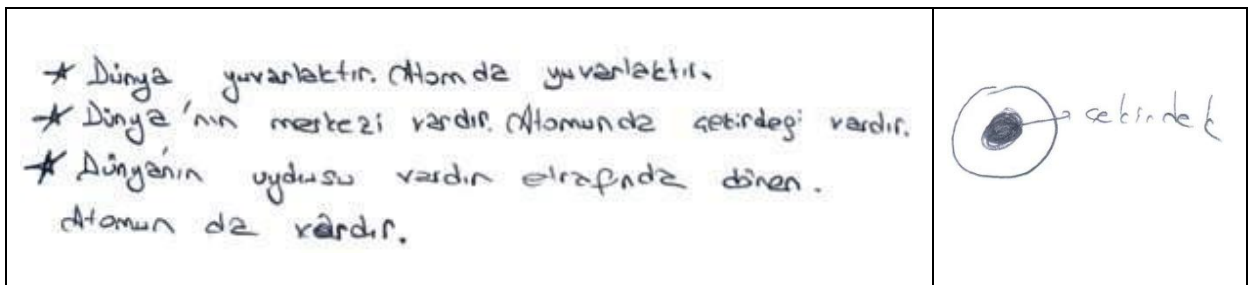 * Dünya yuvarlaktır. Atom da yuvarlaktır.
* Dünya'nın merkezi vardır. Atomunda çekirdeği vardır.
* Dünya'nın uydusu vardır etrafında dönen.
Atomun da vardır.
çekirdek